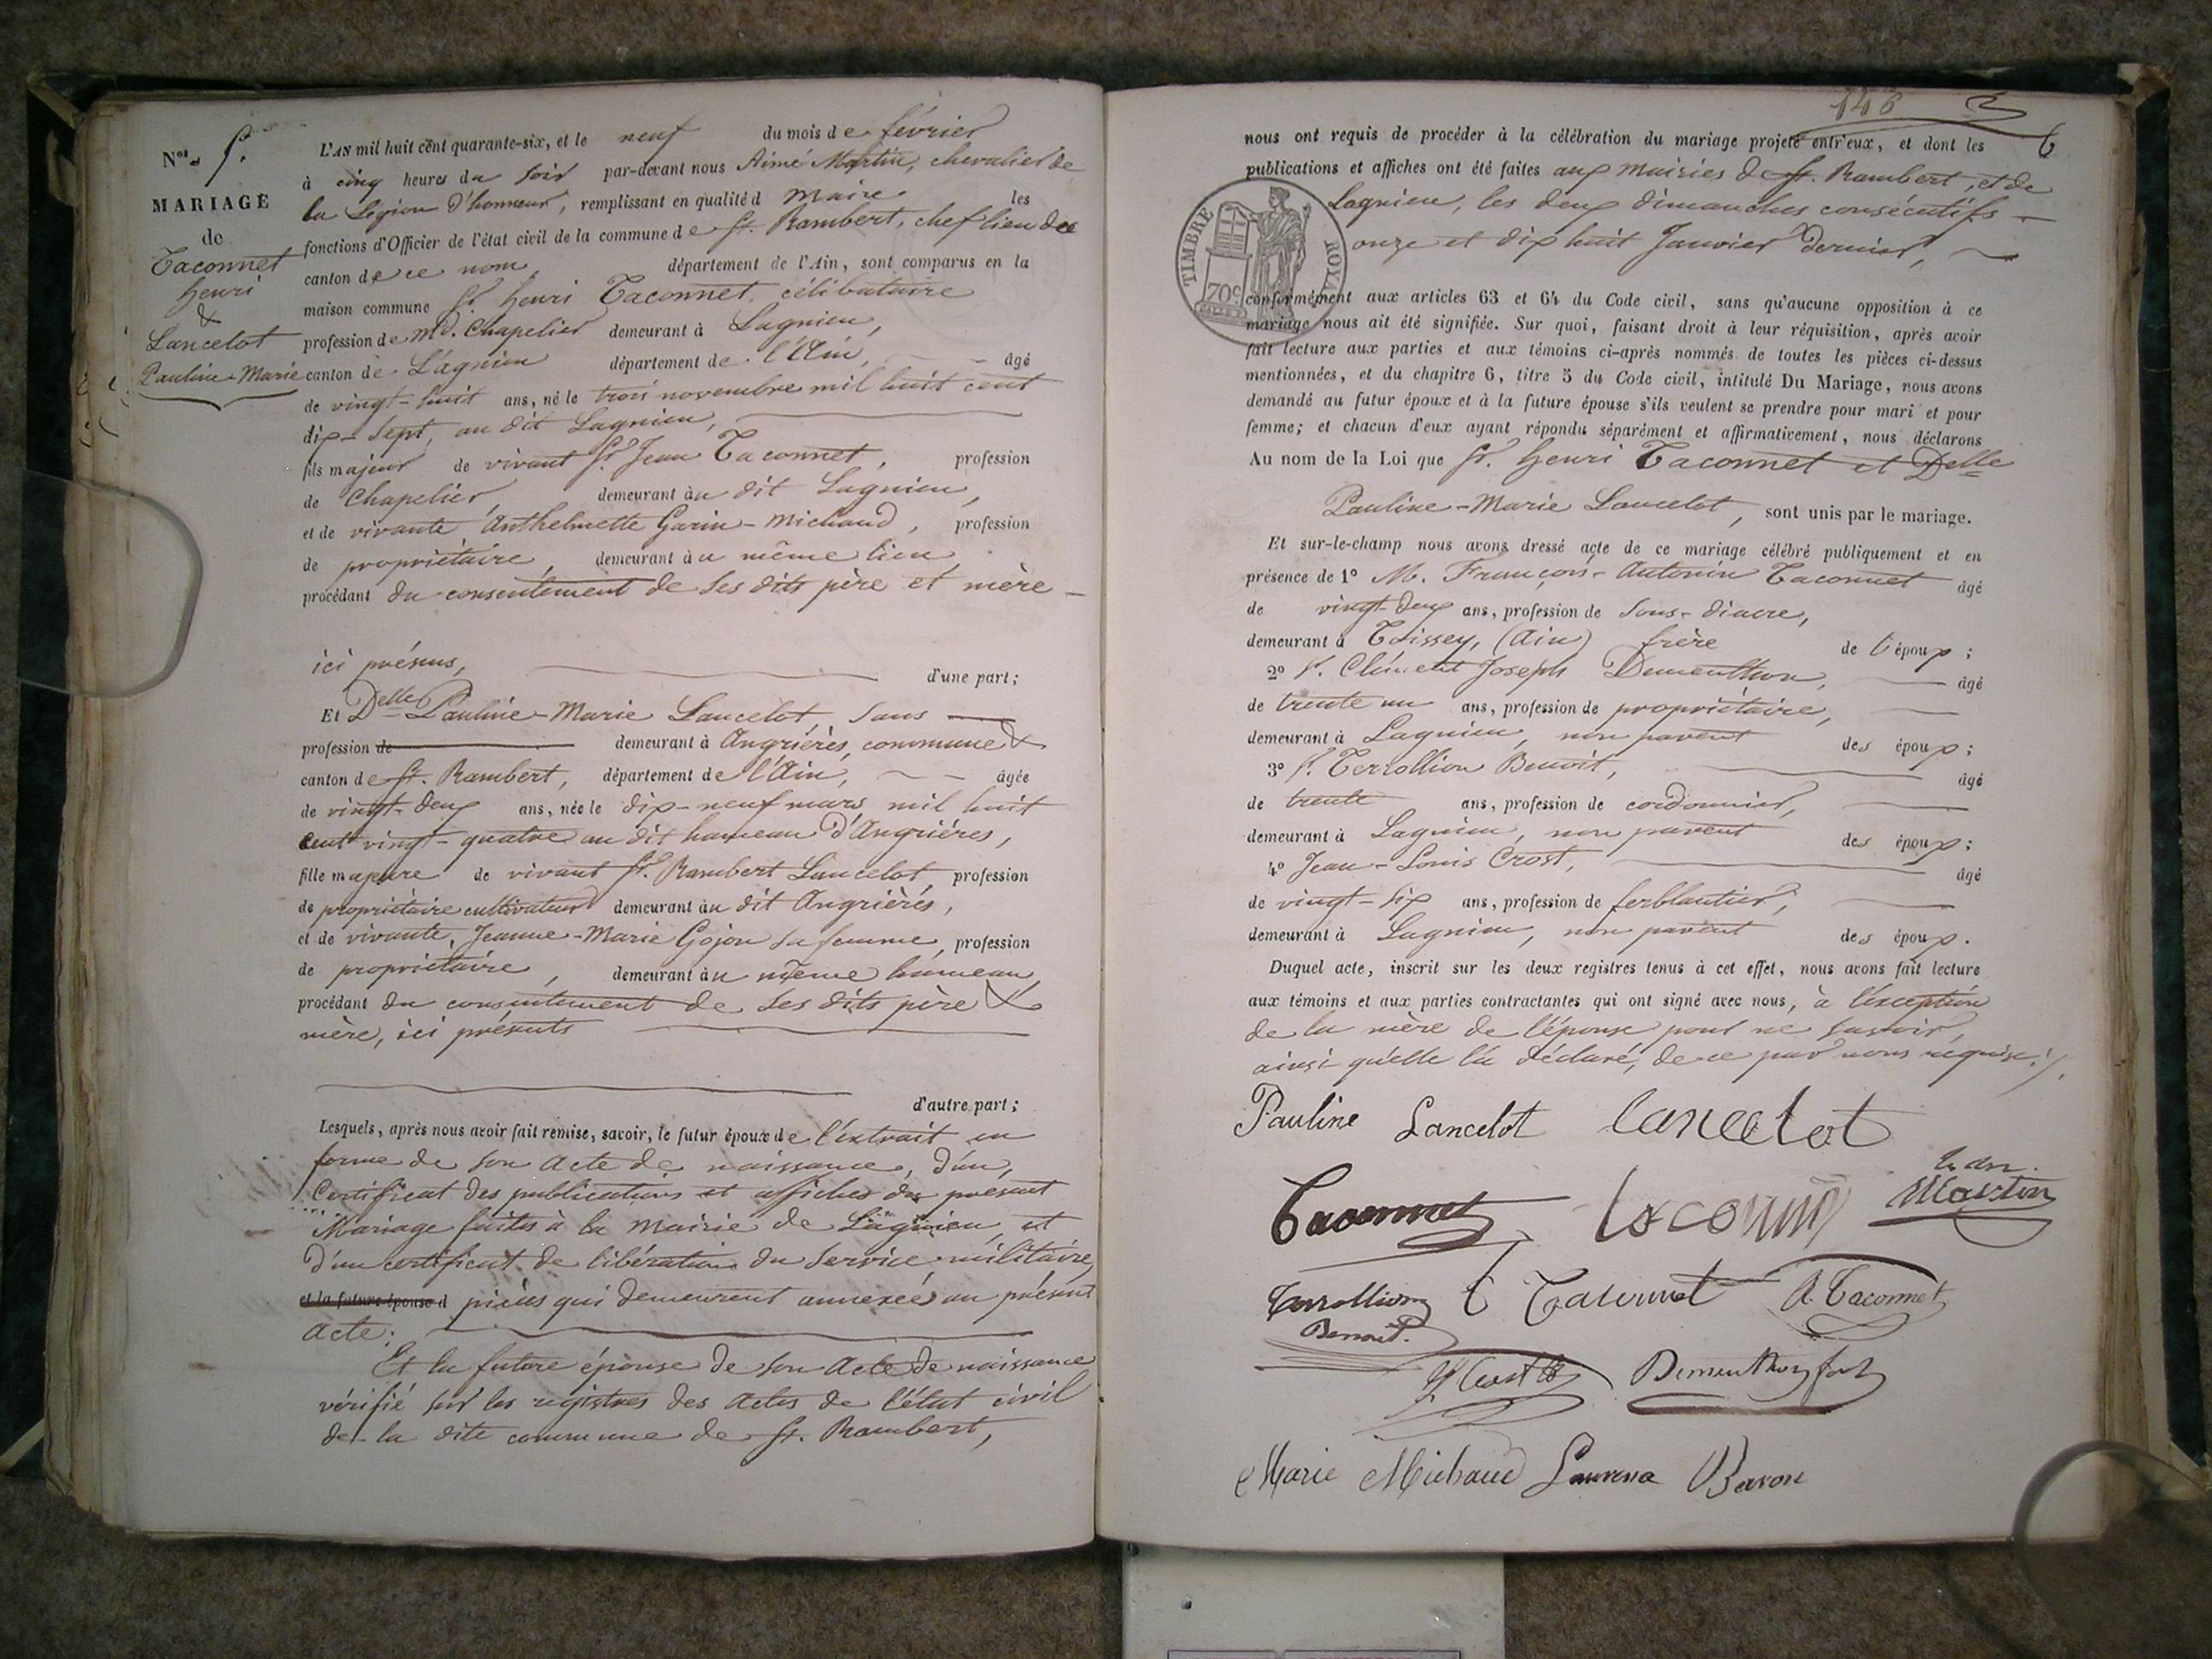 Nos 5.
MARIAGE
de
Taconnet
henri
&
Lancelot
Pauline-Marie
L'AN mil huit cent quarante-six, et le neuf du mois de février
à cinq heures du soir par-devant nous Aimé Martin, chevalier de
la Légion d'honneur, remplissant en qualité d Maire les
fonctions d'Officier de l'état civil de la commune de St. Rambert, chef lieu de
canton de ce nom, département de l'Ain, sont comparus en la
maison commune Sr. henri Taconnet, célibataire
profession de Md. Chapelier demeurant à Lagnieu,
canton de Lagnieu département de l'Ain, âgé
de vingt-huit ans, né le trois novembre mil huit cent
dix-sept, au dit Lagnieu,
fils majeur de vivant Sr. Jean Taconnet, profession
de Chapelier, demeurant au dit Lagnieu,
et de vivante Anthelmette Garin-Michaud, profession
de propriétaire, demeurant au même lieu,
procédant du consentement de ses dits père et mère
ici présens, d'une part;
Et Delle Pauline-Marie Lancelot, sans
profession de demeurant à Angrières, commune &
canton de St. Rambert, département de l'Ain, âgée
de vingt-deux ans, née le dix-neuf mars mil huit
cent vingt-quatre au dit hameau d'Angriéres,
fille majeure de vivant Sr. Rambert Lancelot, profession
de propriétaire cultivateur demeurant au dit Angrières,
et de vivante, Jeanne-Marie Gojon sa femme, profession
de propriétaire, demeurant au même hameau,
procédant du consentement de ses dits père &
mère, ici présents
d'autre part;
Lesquels, après nous avoir fait remise, savoir, le futur époux de l'extrait en
forme de son acte de naissance, d'un
Certificat des publications et affiches du présent
Mariage faites à la Mairie de Lagnieu, et
d'un certificat de libération du service militaire,
et la future épouse d pièces qui demeurent annexées au présent
acte;
Et la future épouse de son acte de naissance
vérifié sur les registres des actes de l'état civil
de la dite commune de St. Rambert,
146
nous ont requis de procéder à la célébration du mariage projeté entr'eux, et dont les
publications et affiches ont été faites aux mairies de St. Rambert, et de
Lagnieu, les deux dimanches consécutifs
onze et dix huit Janvier dernier,
TIMBRE ROYAL
70c
conformément aux articles 63 et 64 du Code civil, sans qu'aucune opposition à ce
mariage nous ait été signifiée. Sur quoi, faisant droit à leur réquisition, après avoir
fait lecture aux parties et aux témoins ci-après nommés de toutes les pièces ci-dessus
mentionnées, et du chapitre 6, titre 5 du Code civil, intitulé Du Mariage, nous avons
demandé au futur époux et à la future épouse s'ils veulent se prendre pour mari et pour
femme; et chacun d'eux ayant répondu séparément et affirmativement, nous déclarons
Au nom de la Loi que Sr. henri Taconnet et Delle
Pauline-Marie Lancelot, sont unis par le mariage.
Et sur-le-champ nous avons dressé acte de ce mariage célébré publiquement et en
présence de 1º M. François-Antonin Taconnet âgé
de vingt-deux ans, profession de sous-diacre,
demeurant à Toissey, (Ain) frère de l'époux;
2º Sr. Clément Joseph Dementhon, âgé
de trente un ans, profession de propriétaire,
demeurant à Lagnieu, non parent des époux;
3º Sr. Terrollion Benoit, âgé
de trente ans, profession de cordonnier,
demeurant à Lagnieu, non parent des époux;
4º Jean-Louis Crost, âgé
de vingt-six ans, profession de ferblantier,
demeurant à Lagnieu, non parent des époux.
Duquel acte, inscrit sur les deux registres tenus à cet effet, nous avons fait lecture
aux témoins et aux parties contractantes qui ont signé avec nous, à l'exception
de la mère de l'épouse pour ne savoir,
ainsi qu'elle l'a déclaré, de ce par nous requise./.
Pauline Lancelot Lancelot
Taconnet Martin
Terrollion Taconnet A. Taconnet
Benoit.
Crost Dementhon
Marie Michaud Baron